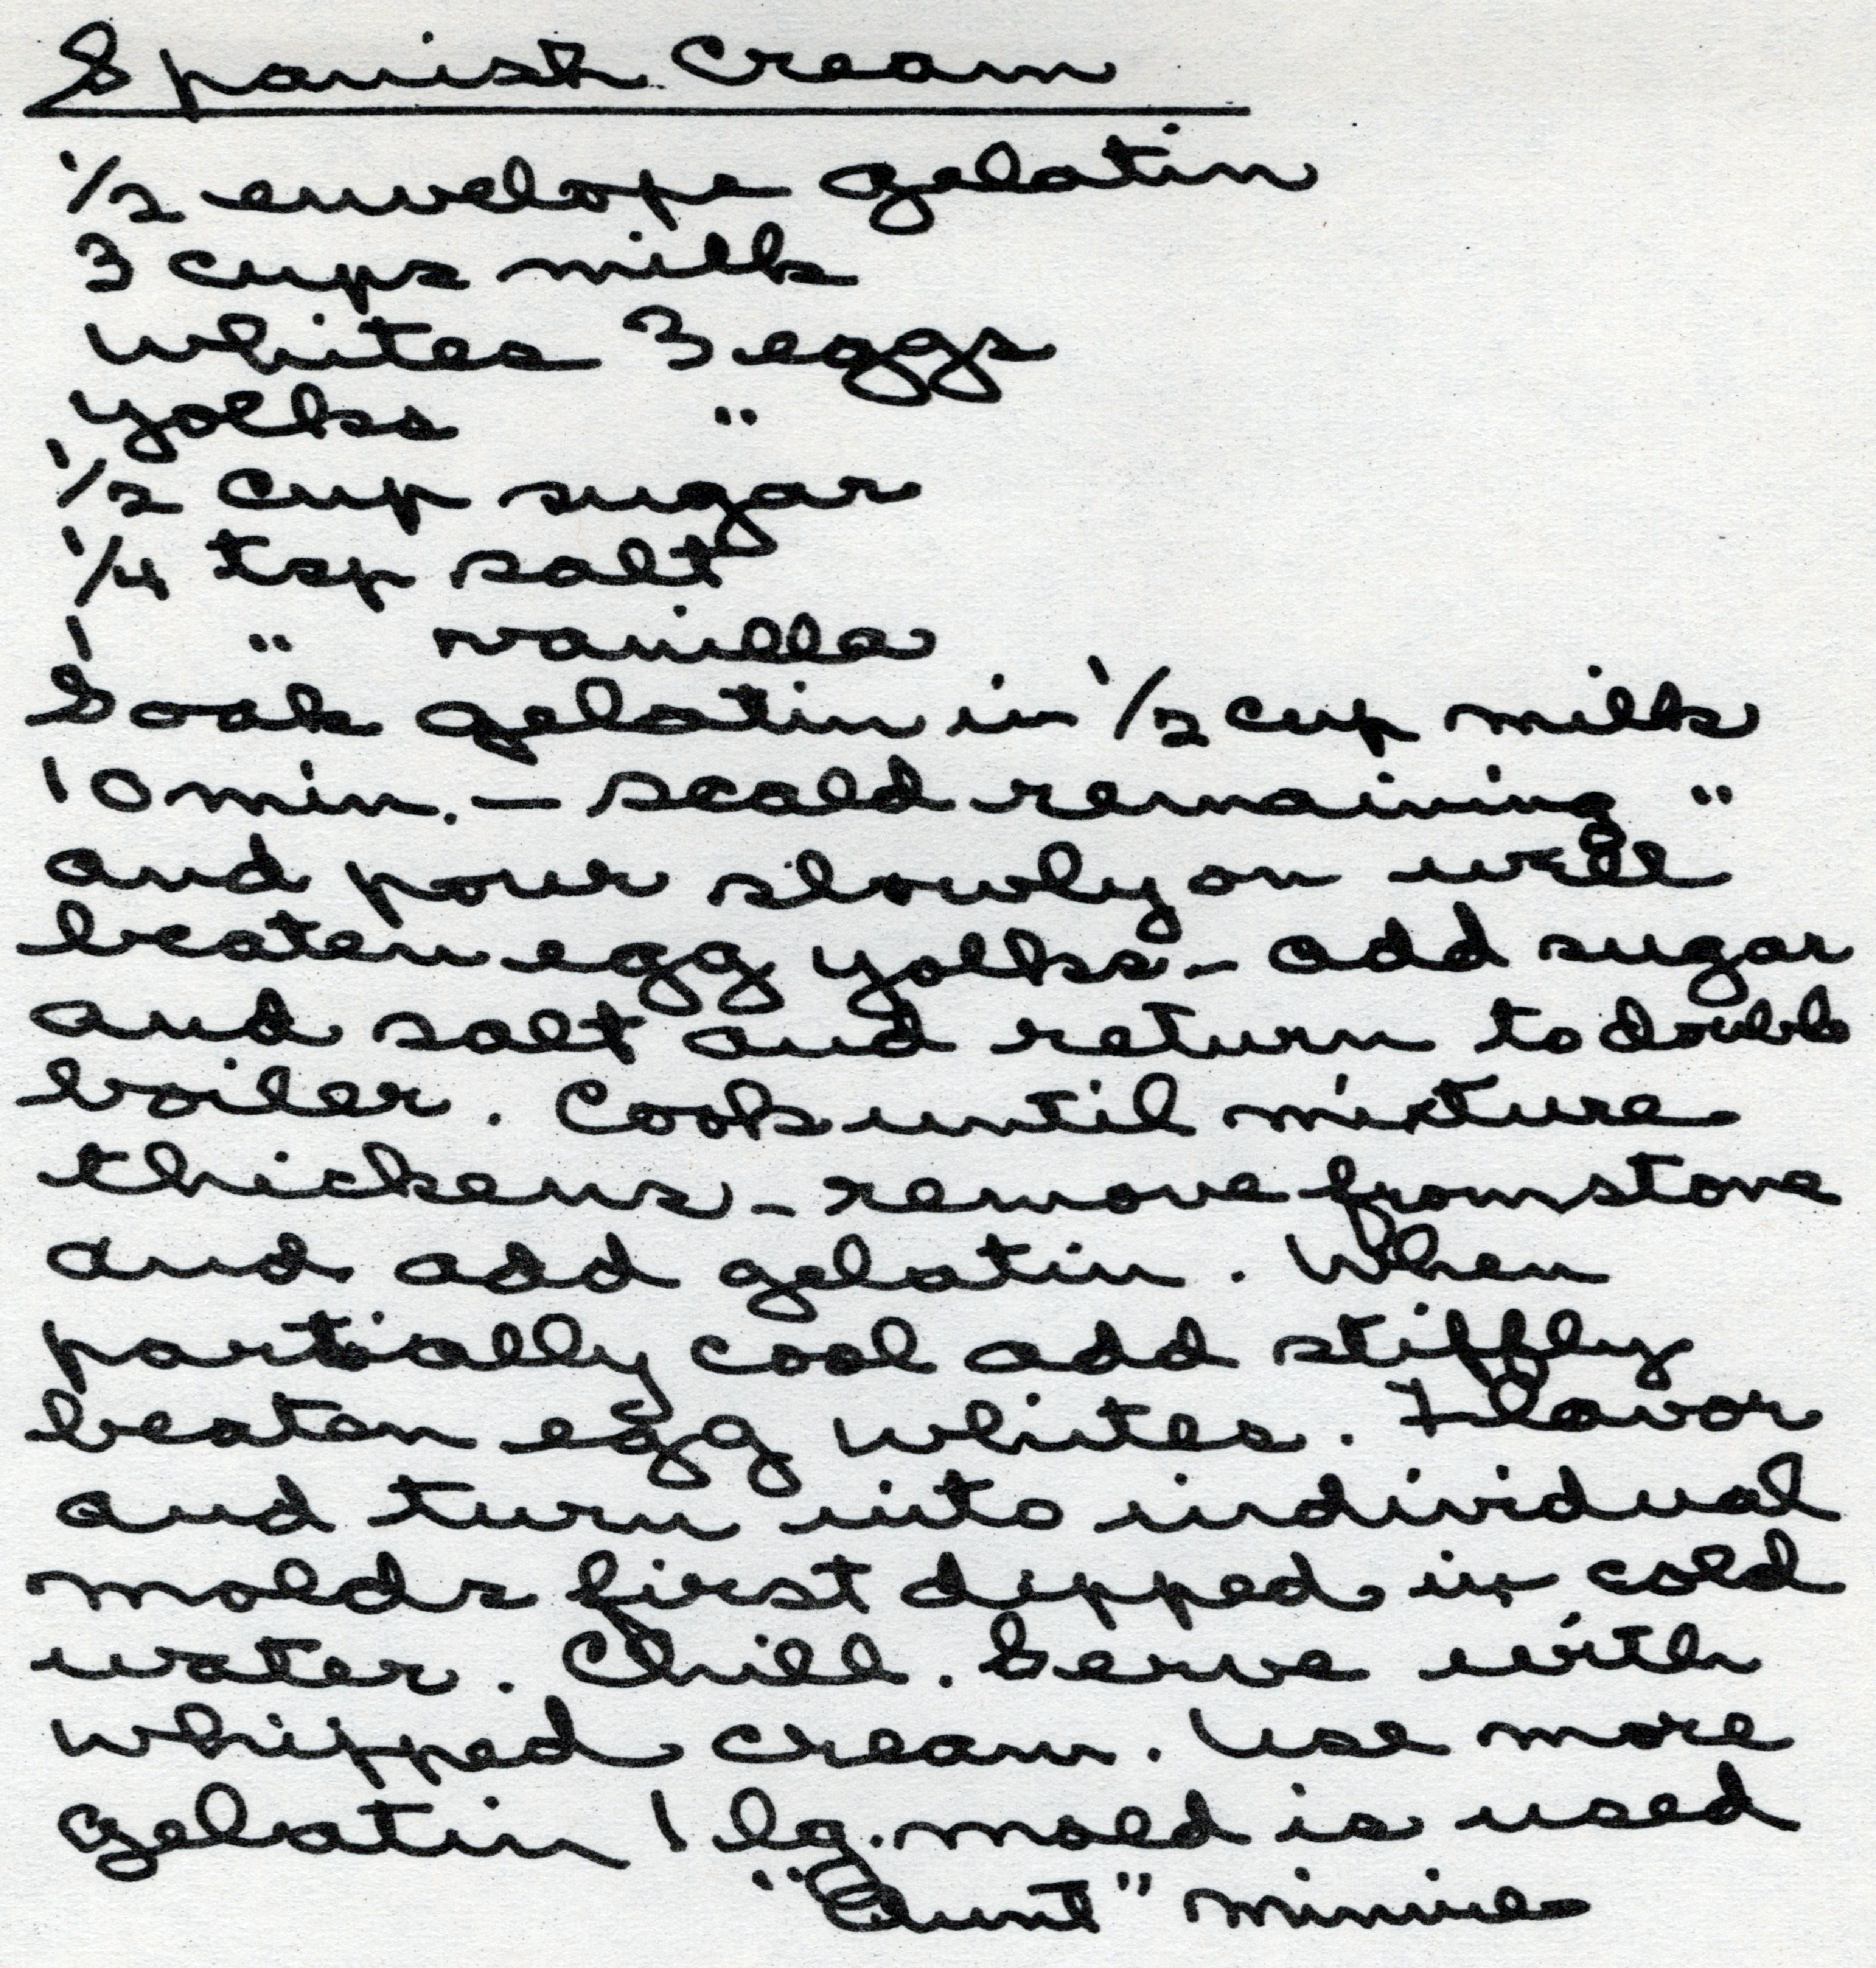 Spanish Cream
1/2 envelope gelatin
3 cups milk
Whites 3 eggs
yolks "
1/2 cup sugar
1/4 tsp salt
1 " vanilla
Soak gelatin in 1/2 cup milk
10 min. — scald remaining "
and pour slowly on well
beaten egg yolks - add sugar
and salt and return to double
boiler. Cook until mixture
thickens - remove from stove
and add gelatin. When
partially cool add stiffly
beaten egg whites. Flavor
and turn into individual
molds first dipped in cold
water. Chill. Serve with
whipped cream. Use more
gelatin 1 lg. mold is used
"Aunt" Minnie